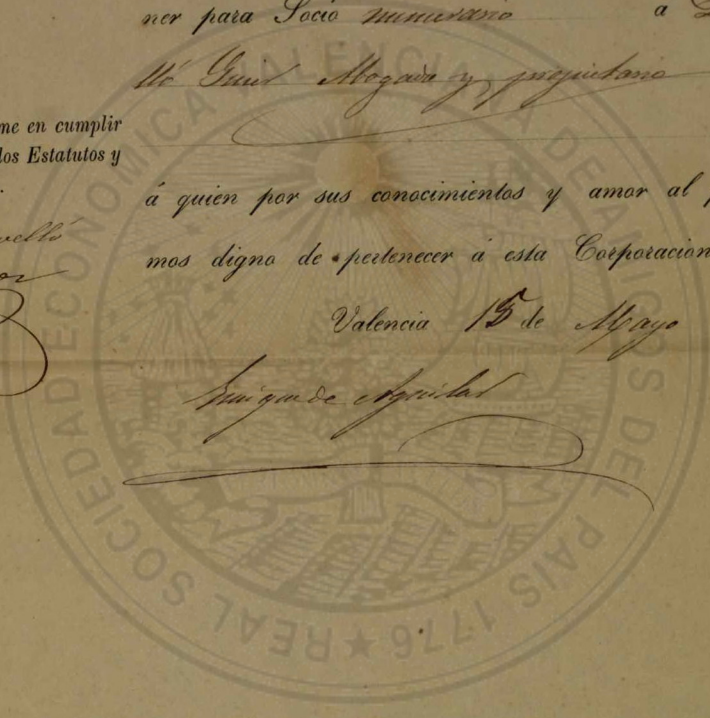 ner para Socio numerario a D
lló Guier Abogado y propietario
me en cumplir
los Estatutos y
á quien por sus conocimientos y amor al p
velló
mos digno de pertenecer á esta Corporacion
Valencia 15 de Mayo
Enrique de Aguilar
REAL SOCIEDAD ECONOMICA VALENCIANA DE AMIGOS DEL PAIS 1776